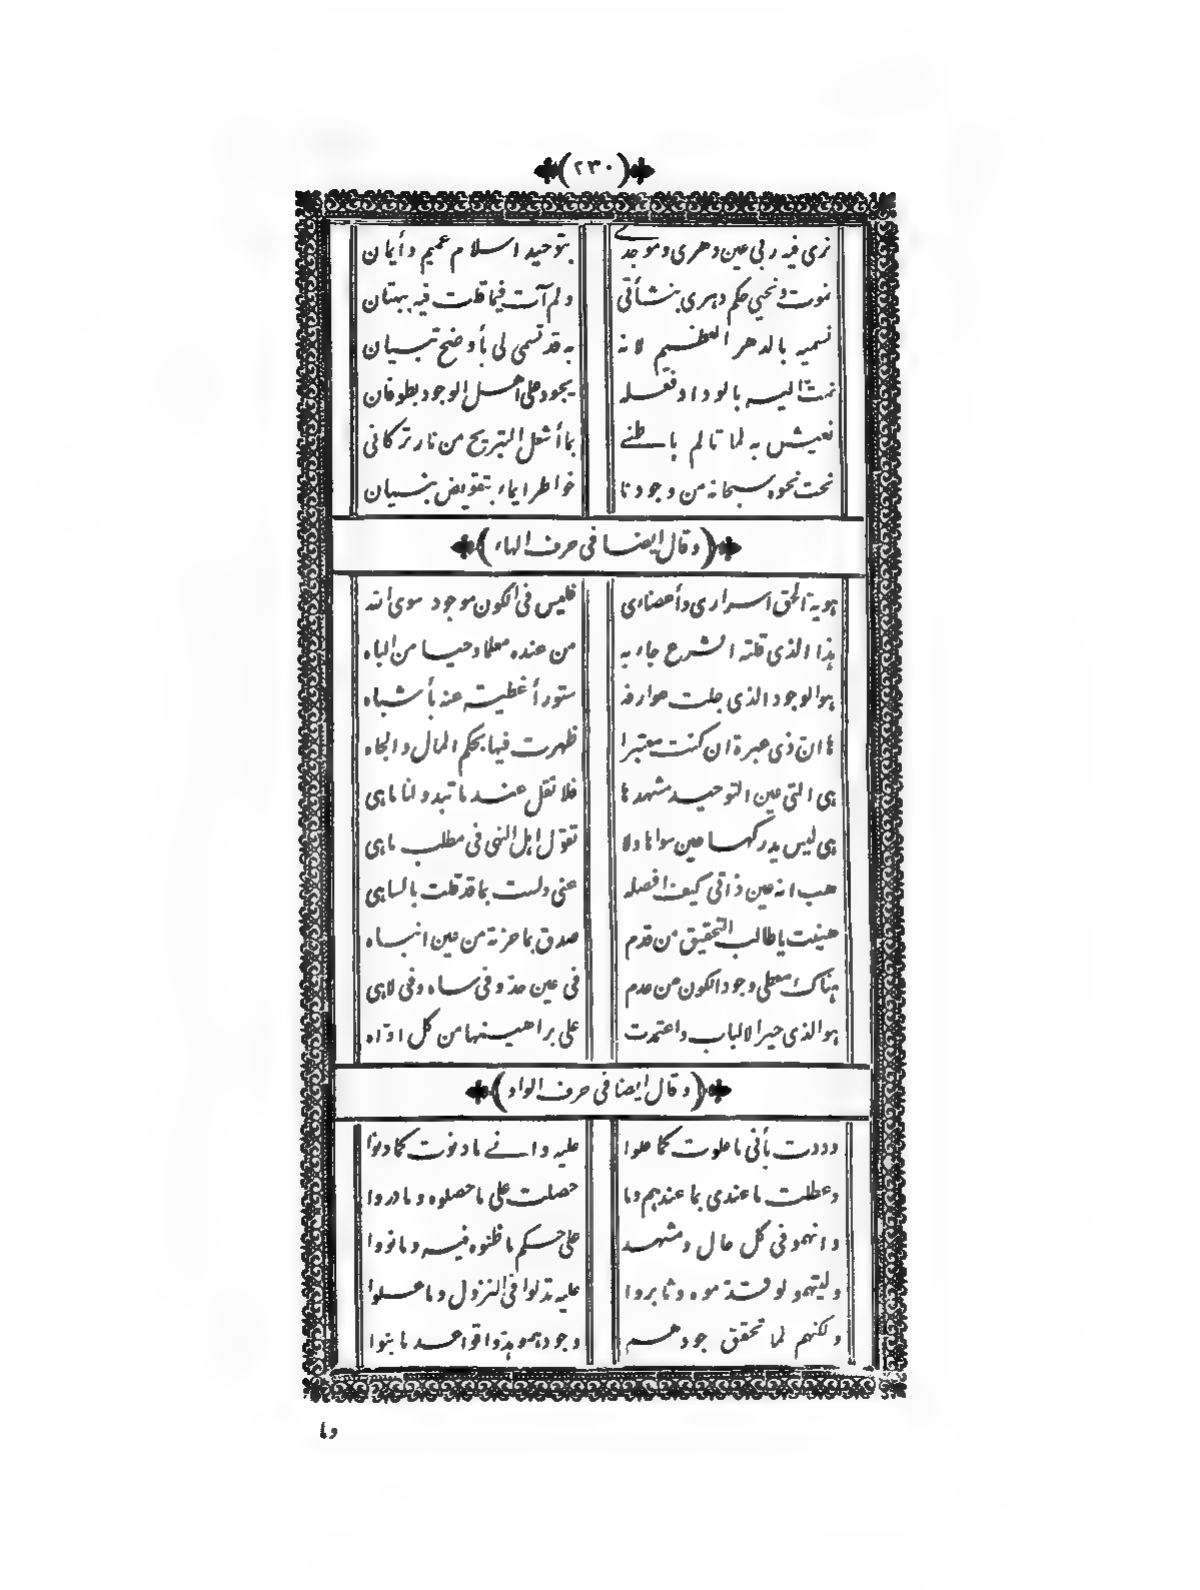 (٢٣٠)
نرى فيه ربي عين دهرى وموجدے بتوحيد اسلام عميم وأيمان
نموت ونحيي حكم دهرى بنشأتى ولم آت فيما قلت فيه ببهتان
نسميه بالدهر العظيم لانه به قد تسمى لى بأوضح تبيان
نمت اليه بالوداد فعله يجود على اهل الوجود بطوفان
نعيش به لما تالم باطنے بما أشعل التبريح من نار تركانى
نحت نحوه سبحانه من وجودنا خواطر ايماء بتفويض نسيان
(وقال ايضا فى حرف الهاء)
هوية الحق اسرارى وأعضاءى فليس فى الكون موجود سوى الله
هذا الذى قلته الشرع جاء به من عنده معلما وحيا من الباه
هو الوجود الذى جلت عوارفه ستور أغطية عنه بأشباه
ها ان ذى عبرة ان كنت معتبرا ظهرت فيها بحكم المال والجاه
هى التى عين التوحيد مشهدها فلا تقل عند ما تبدو لنا ماهى
هى ليس يدركها عين سوانا ولا تقول اهل النهى فى مطلب ماهى
هب انه عين ذاتى كيف افصله عنى ولست بما قد قلت بالساهى
هيئت يا طالب التحقيق من قدم صدق بما حزته من عين انباه
هناك معطى وجود الكون من عدم فى عين حذ وفى ساه وفى لاهى
هو الذى حير الالباب واعتمدت على براهينها من كل اوّاه
(وقال ايضا فى حرف الواو)
وددت بأنى ما علوت كما علوا عليه وانے ما دنوت كما دنوا
وعطلت ما عندى بما عندهم وما حصلت على ما حصلوه وما دروا
وانهمو فى كل حال ومشهد على حكم ما ظنوه فيه وما نووا
وليتهمو لو قدموه وثابروا عليه تدلوا فى النزول وما علوا
ولكنهم لما تحقق جودهم وجودهمو هدوا قواعد ما بنوا
وما